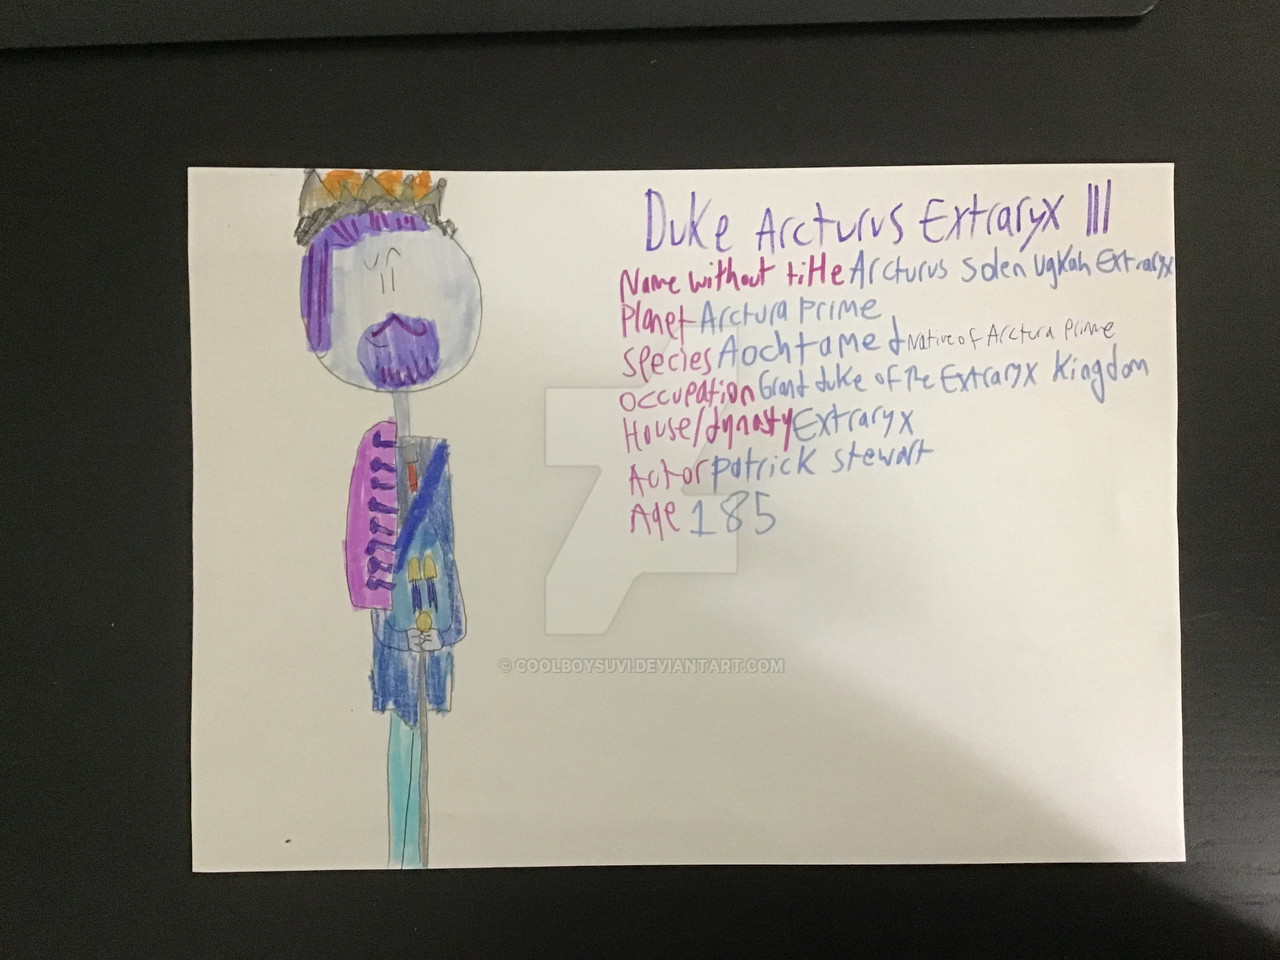 Duke Arcturus Extraryx III
Name without title Arcturus Solen Ugkah Extraryx
Planet Arctura Prime
Species Aochtamed Native of Arctura Prime
Occupation Grand duke of the Extraryx Kingdom
House/dynasty Extraryx
Actor patrick stewart
Age 185
© COOLBOYSUVI.DEVIANTART.COM